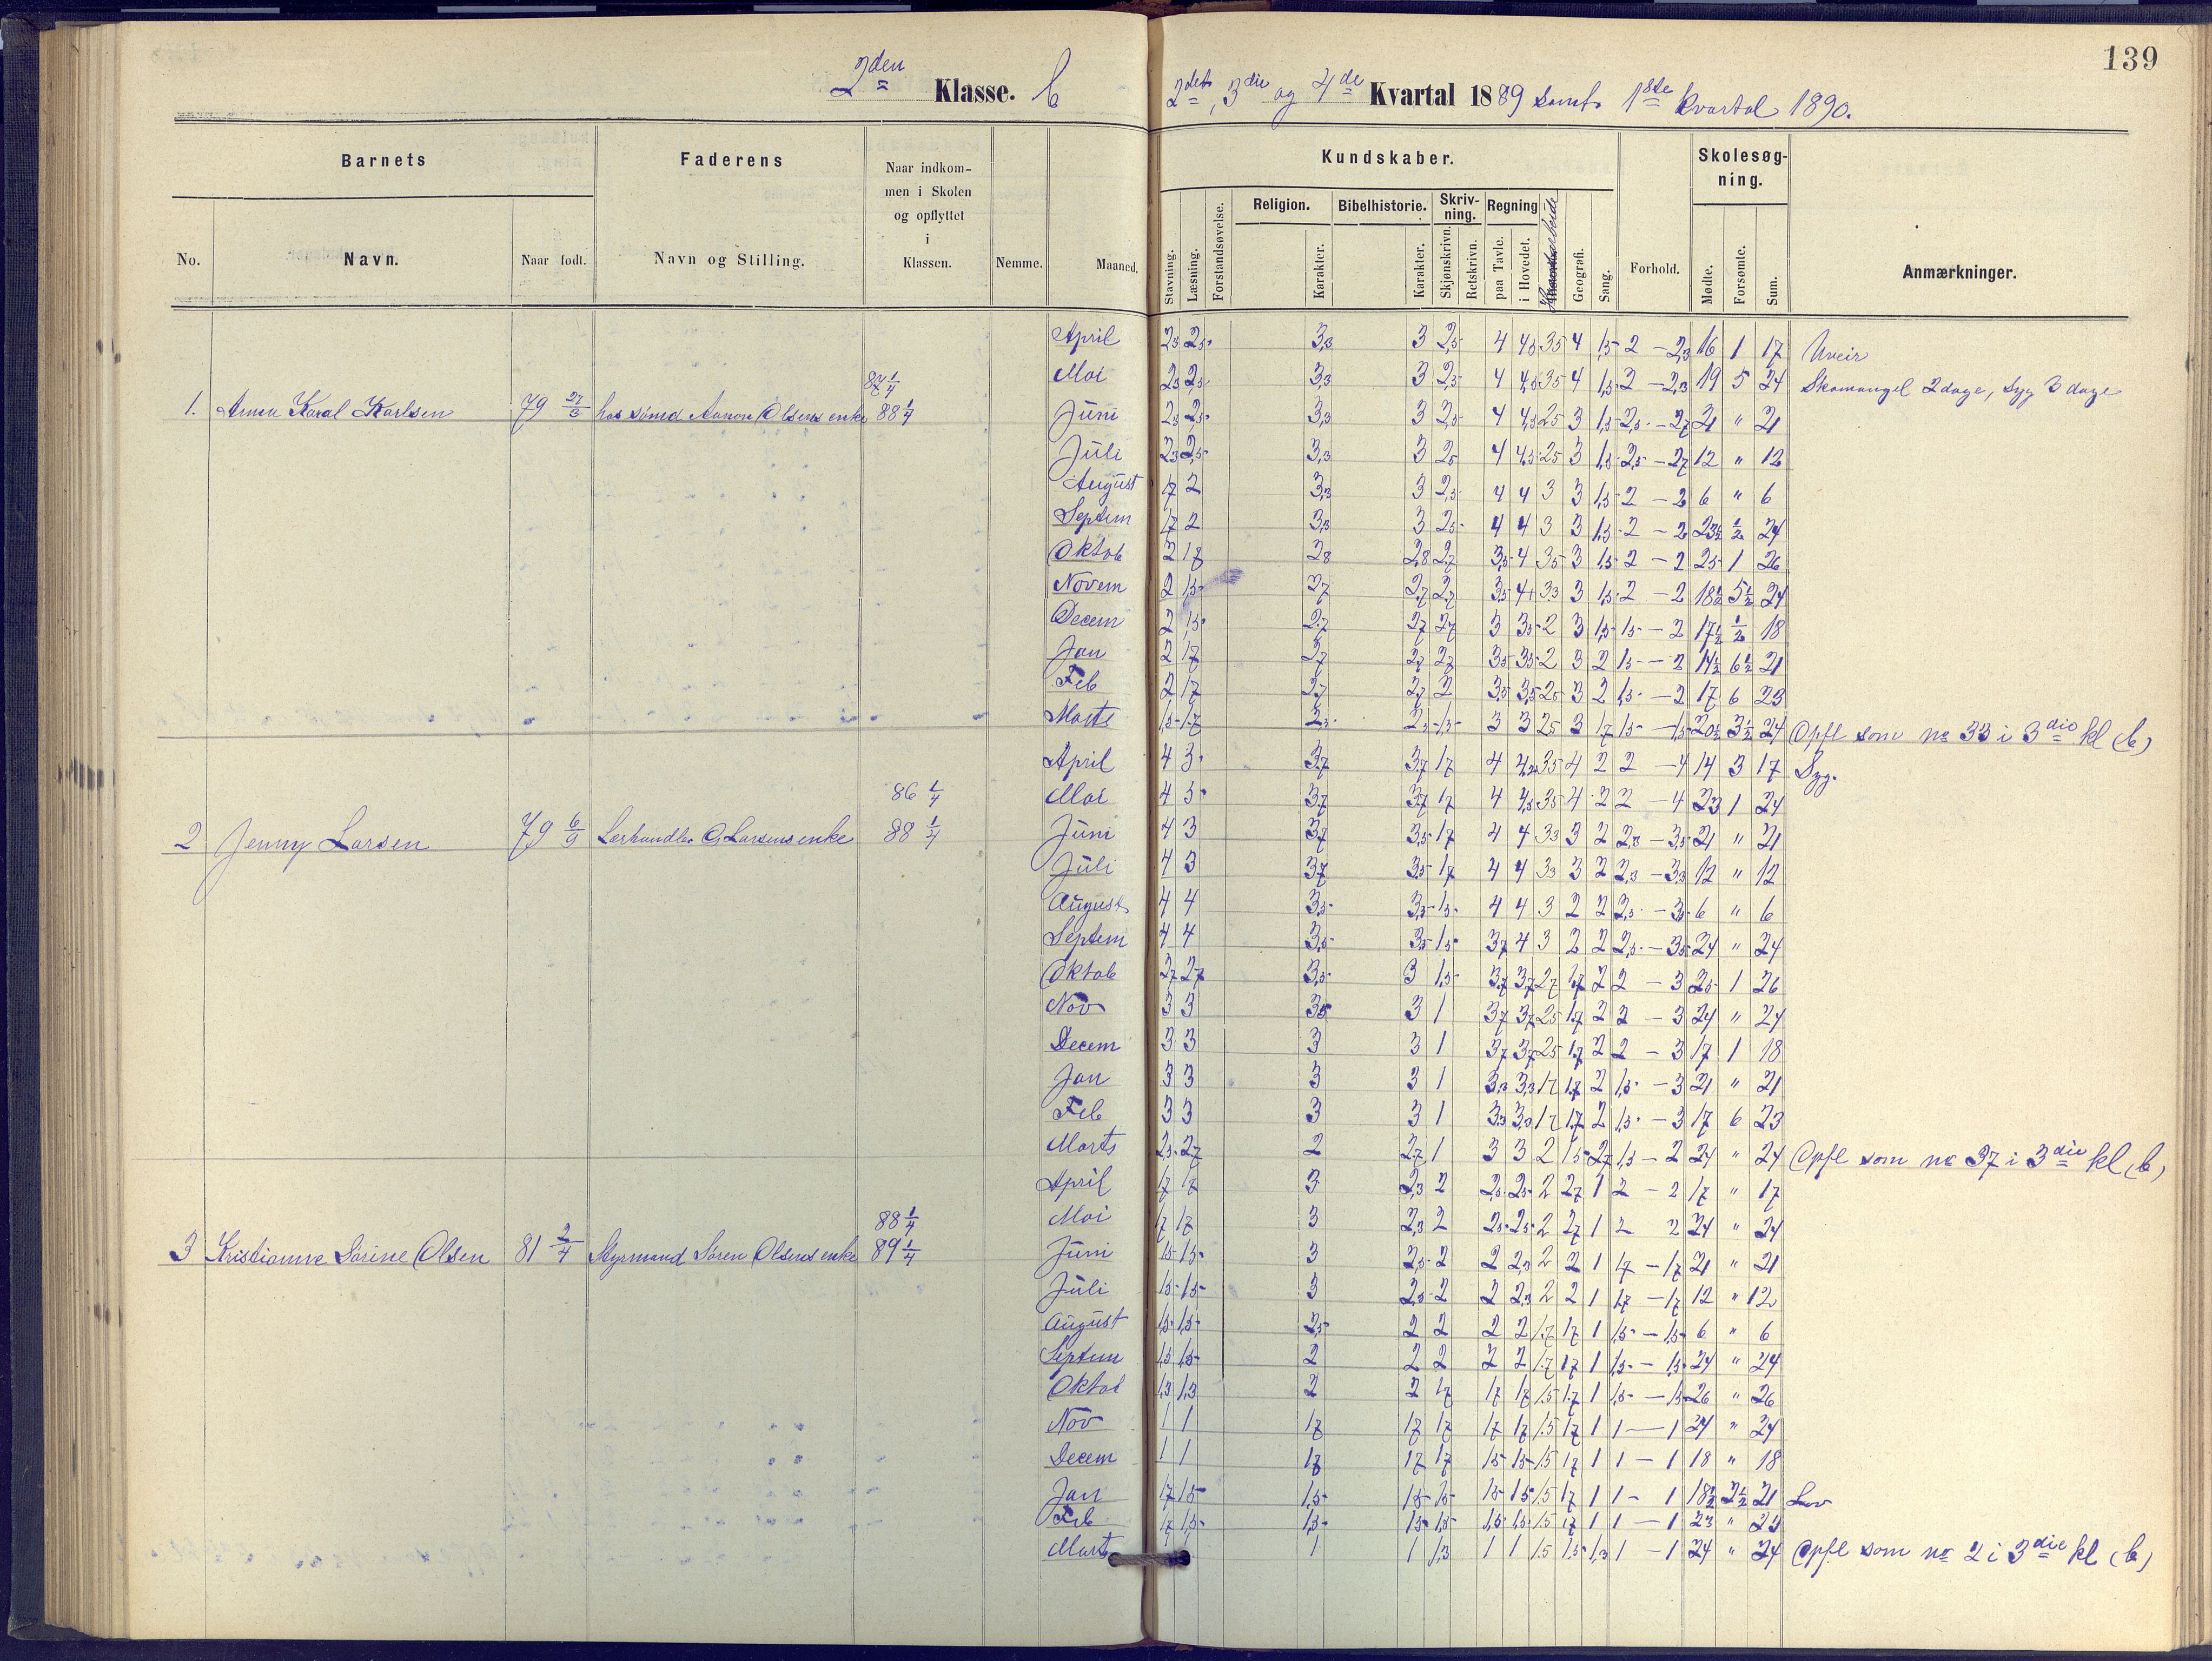 139
2den Klasse. b 2det, 3die og 4de Kvartal 1889 samt 1ste Kvartal 1890.
Barnets Faderens Naar indkommen i Skolen og opflyttet i Klassen. Nemme. Maaned. Kundskaber. Forhold. Skolesøgning. Anmærkninger.
No. Navn. Naar født. Navn og Stilling.
Stavning. Læsning. Forstandsøvelse. Religion. Karakter. Bibelhistorie. Karakter. Skrivning. Skjønskrivn. Retskrivn. Regning paa Tavle. i Hovedet. Haandarbeide Geografi. Sang. Mødte. Forsømte. Sum.
April 2,3 2,5 3,3 3 2,5 4 4,3 3,5 4 1,5 2 — 2,3 16 1 17 Uveir
87 1/4
Mai 2,3 2,5 3,3 3 2,5 4 4,3 3,5 4 1,5 2 — 2,3 19 5 24 Skomangel 2 dage, Syg 3 dage
1. Anna Karal Karlsen 79 27/3 hos sömd Aanon Olsens enke 88 1/4 Juni 2,3 2,5 3,3 3 2,5 4 4,3 2,5 3 1,5 2,5 — 2,7 21 " 21
Juli 2,3 2,5 3,3 3 2,5 4 4,3 2,5 3 1,5 2,5 — 2,7 12 " 12
August 1,7 2 3,3 3 2,5 4 4 3 3 1,5 2 — 2 6 " 6
Septem 1,7 2 3,3 3 2,5 4 4 3 3 1,5 2 — 2 23½ ½ 24
Oktob 2 1,7 2,8 2,8 2,7 3,5 4 3,5 3 1,5 2 — 2 25 1 26
Novem 2 1,5 2,7 2,7 2,7 3,5 4+ 3,3 3 1,5 2 — 2 18½ 5½ 24
Decem 2 1,5 2,7 2,7 2,7 3 3,5 2 3 1,5 1,5 — 2 17½ ½ 18
Jan 2 1,7 2,7 2,7 2,7 3,5 3,5 2 3 2 1,5 — 2 14½ 6½ 21
Feb 2 1,7 2,7 2,7 2 3,5 3,5 2,5 3 2 1,5 — 2 17 6 23
Marts 1,5 1,7 2,5 2,5 1,5 3 3 2,5 3 1,7 1,5 — 1,5 20½ 3½ 24 Opfl som no 33 i 3die kl (b)
April 4 3 3,7 3,7 1,7 4 4,3 3,5 4 2 2 — 4 14 3 17 Syg.
86 1/4
Mai 4 3 3,7 3,7 1,7 4 4,3 3,5 4 2 2 — 4 23 1 24
2 Jenny Larsen 79 6/9 Lærhandler G Larsens enke 88 1/4 Juni 4 3 3,7 3,5 1,7 4 4 3,3 3 2 2,3 — 3,5 21 " 21
Juli 4 3 3,7 3,5 1,7 4 4 3,3 3 2 2,3 — 3,3 12 " 12
August 4 4 3,5 3,5 1,5 4 4 3 2 2 2,5 — 3,5 6 " 6
Septem 4 4 3,5 3,5 1,5 3,7 4 3 2 2 2,5 — 3,5 24 " 24
Oktob 2,7 2,7 3,5 3 1,5 3,7 3,7 2,7 1,7 2 2 — 3 25 1 26
Nov 3 3 3,5 3 1 3,7 3,7 2,5 1,7 2 2 — 3 24 " 24
Decem 3 3 3 3 1 3,7 3,7 2,5 1,7 2 2 — 3 17 1 18
Jan 3 3 3 3 1 3,3 3,3 1,7 1,7 2 1,5 — 3 21 " 21
Feb 3 3 3 3 1 3,3 3,3 1,7 1,7 2 1,5 — 3 17 6 23
Marts 2,5 2,7 2 2,7 1 3 3 2 1,5 2,7 1,5 — 2 24 " 24 Opfl som no 37 i 3die kl (b)
April 1,7 1,7 3 2,3 2 2,5 2,5 2 2,7 1 2 — 2 17 " 17
88 1/4
Mai 1,7 1,7 3 2,3 2 2,5 2,5 2 2,7 1 2 2 24 " 24
3 Kristianne Sørine Olsen 81 2/4 Styrmand Søren Olsens enke 89 1/4 Juni 1,5 1,5 3 2,5 2 2 2,3 2 2 1 1,7 — 1,7 21 " 21
Juli 1,5 1,5 3 2,5 2 2 2,3 2 2 1 1,7 — 1,7 12 " 12
August 1,5 1,5 2,5 2 2 2 2 1,7 1,7 1 1,5 — 1,5 6 " 6
Septem 1,5 1,5 2 2 2 2 2 1,7 1,7 1 1,5 — 1,5 24 " 24
Oktob 1,3 1,3 2 2 1,7 1,7 1,7 1,5 1,7 1 1,5 — 1,5 26 " 26
Nov 1 1 1,7 1,7 1,7 1,7 1,7 1,5 1,7 1 1 — 1 24 " 24
Decem 1 1 1,7 1,7 1,7 1,5 1,5 1,5 1,7 1 1 — 1 18 " 18
Jan 1,7 1,5 1,5 1,5 1,5 1,5 1,5 1,5 1,7 1 1 — 1 18½ 2½ 21 Lov
Feb 1,7 1,5 1,5 1,5 1,5 1,5 1,5 1,5 1,7 1 1 — 1 23 " 23
Marts 1 1 1,3 1 1 1,5 1,5 1,3 1 — 1 24 " 24 Opfl som no 2 i 3die kl (b)